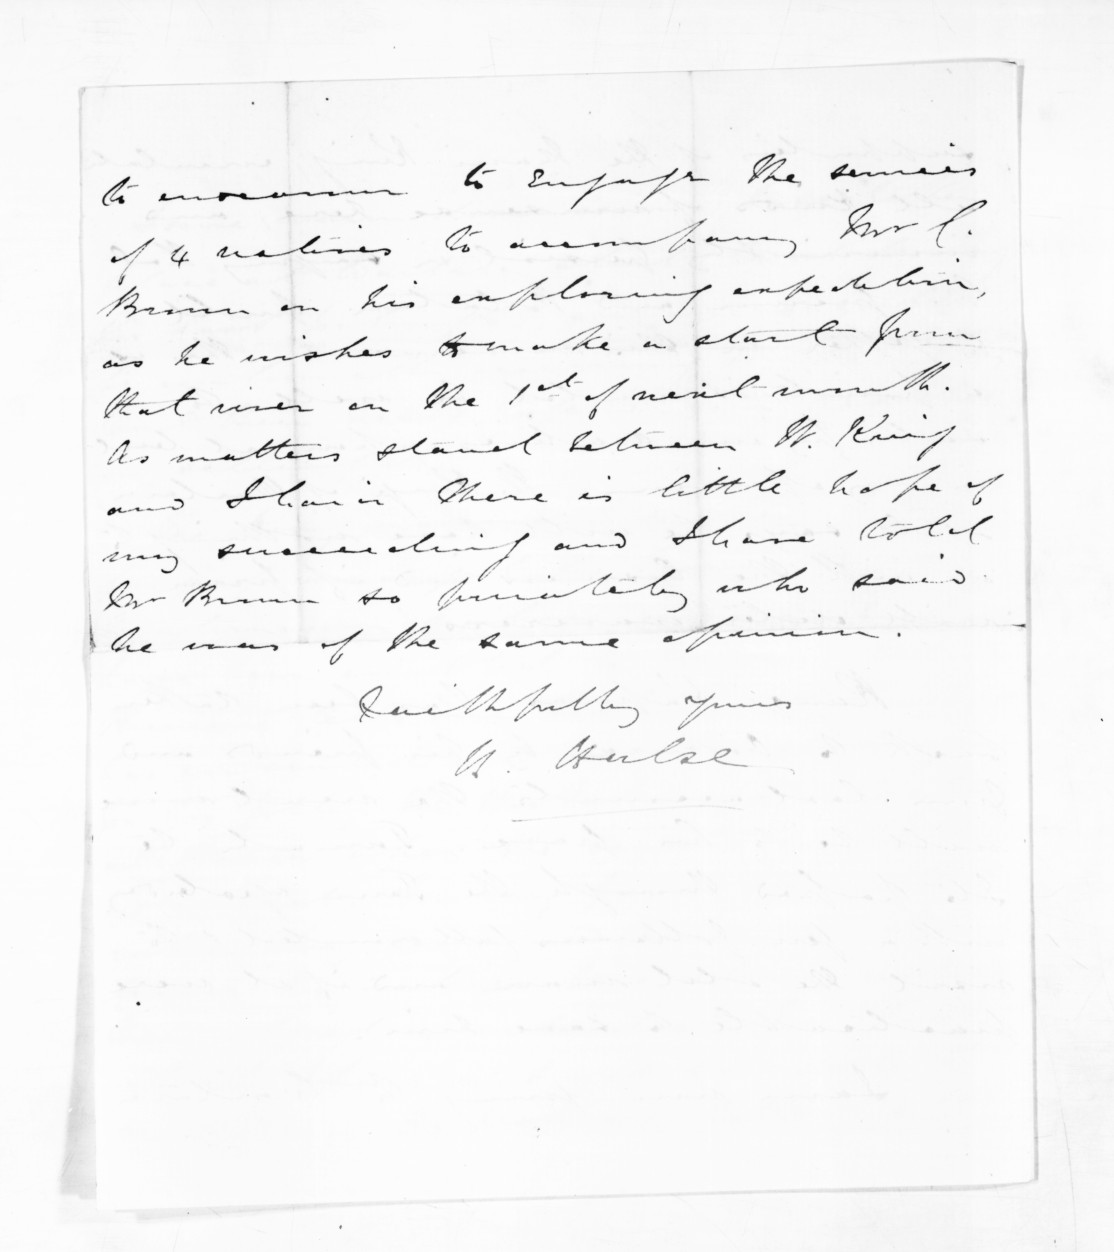 to endeavour to engage the services
of 4 natives to accompany Mr C.
Brown on his exploring expedition,
as he wishes to make a start from
that river on the 1st of next month.
As matters stand between W. King
and Ihaia there is little hope of
my succeeding and I have told
Mr Brown so privately who said
he was of the same opinion.
Faithfully yours
H. Halse